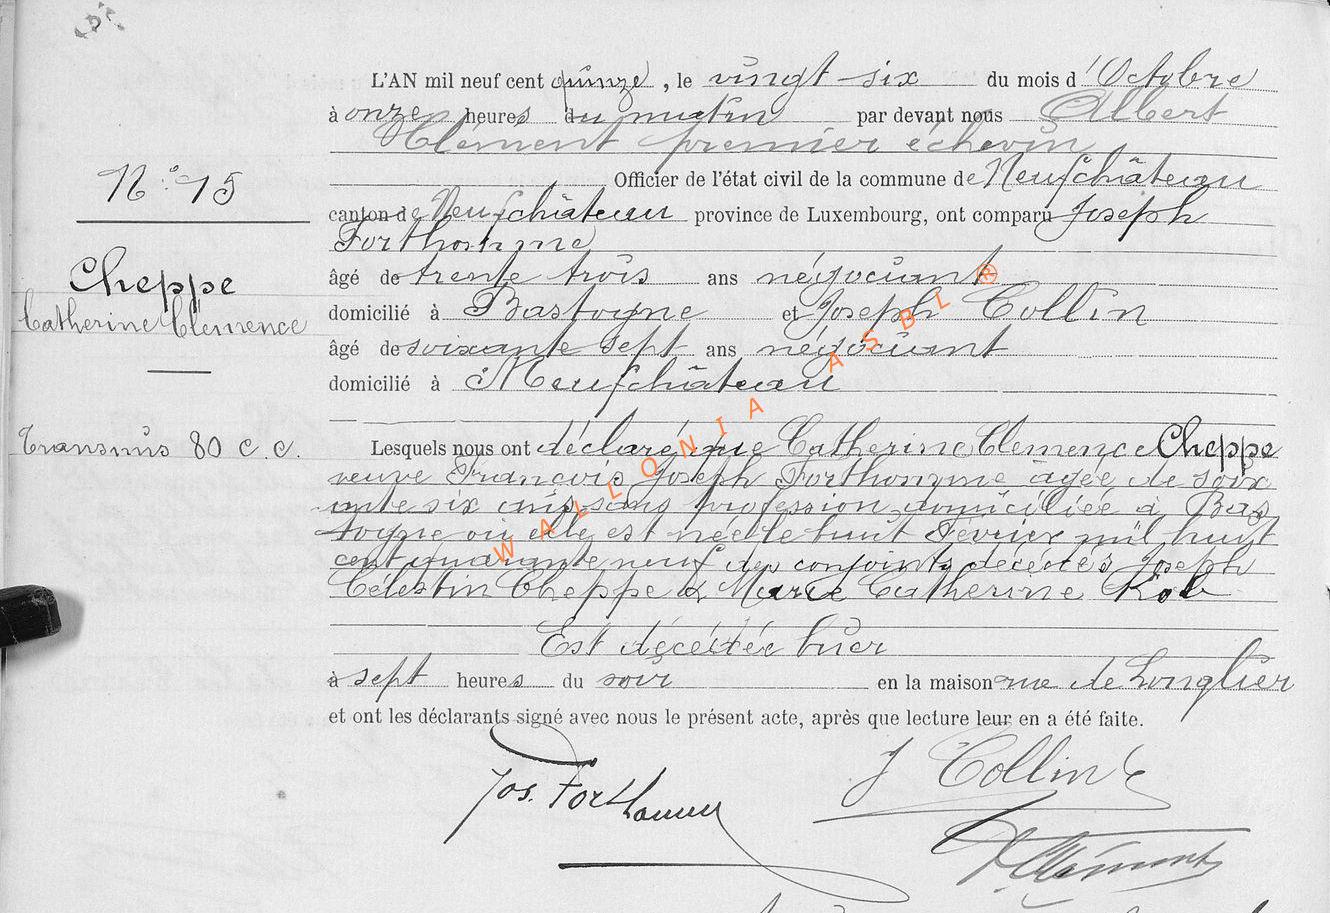 L'AN mil neuf cent quinze, le vingt six du mois d'Octobre
à onze heures du matin par devant nous Albert
Clément premier échevin
Officier de l'état civil de la commune de Neufchâteau
N° 15
canton de Neufchâteau province de Luxembourg, ont comparu Joseph
Forthomme
Cheppe
âgé de trente trois ans négociant
Catherine Clémence
domicilié à Bastogne et Joseph Collin
âgé de soixante sept ans négociant
domicilié à Neufchâteau
WALLONIA ASBL ®
Transmis 80 c. c.
Lesquels nous ont déclaré que Catherine Clemence Cheppe
veuve François Joseph Forthomme âgée de soix
ante six ans, sans profession domiciliée à Bas
togne où elle est née le huit Février mil huit
cent quarante neuf des conjoints décédés Joseph
Célestin Cheppe & Marie Catherine Kob
Est décédée hier
à sept heures du soir en la maison rue de Longlier
et ont les déclarants signé avec nous le présent acte, après que lecture leur en a été faite.
J Collin
Jos. Forthomme
Clément